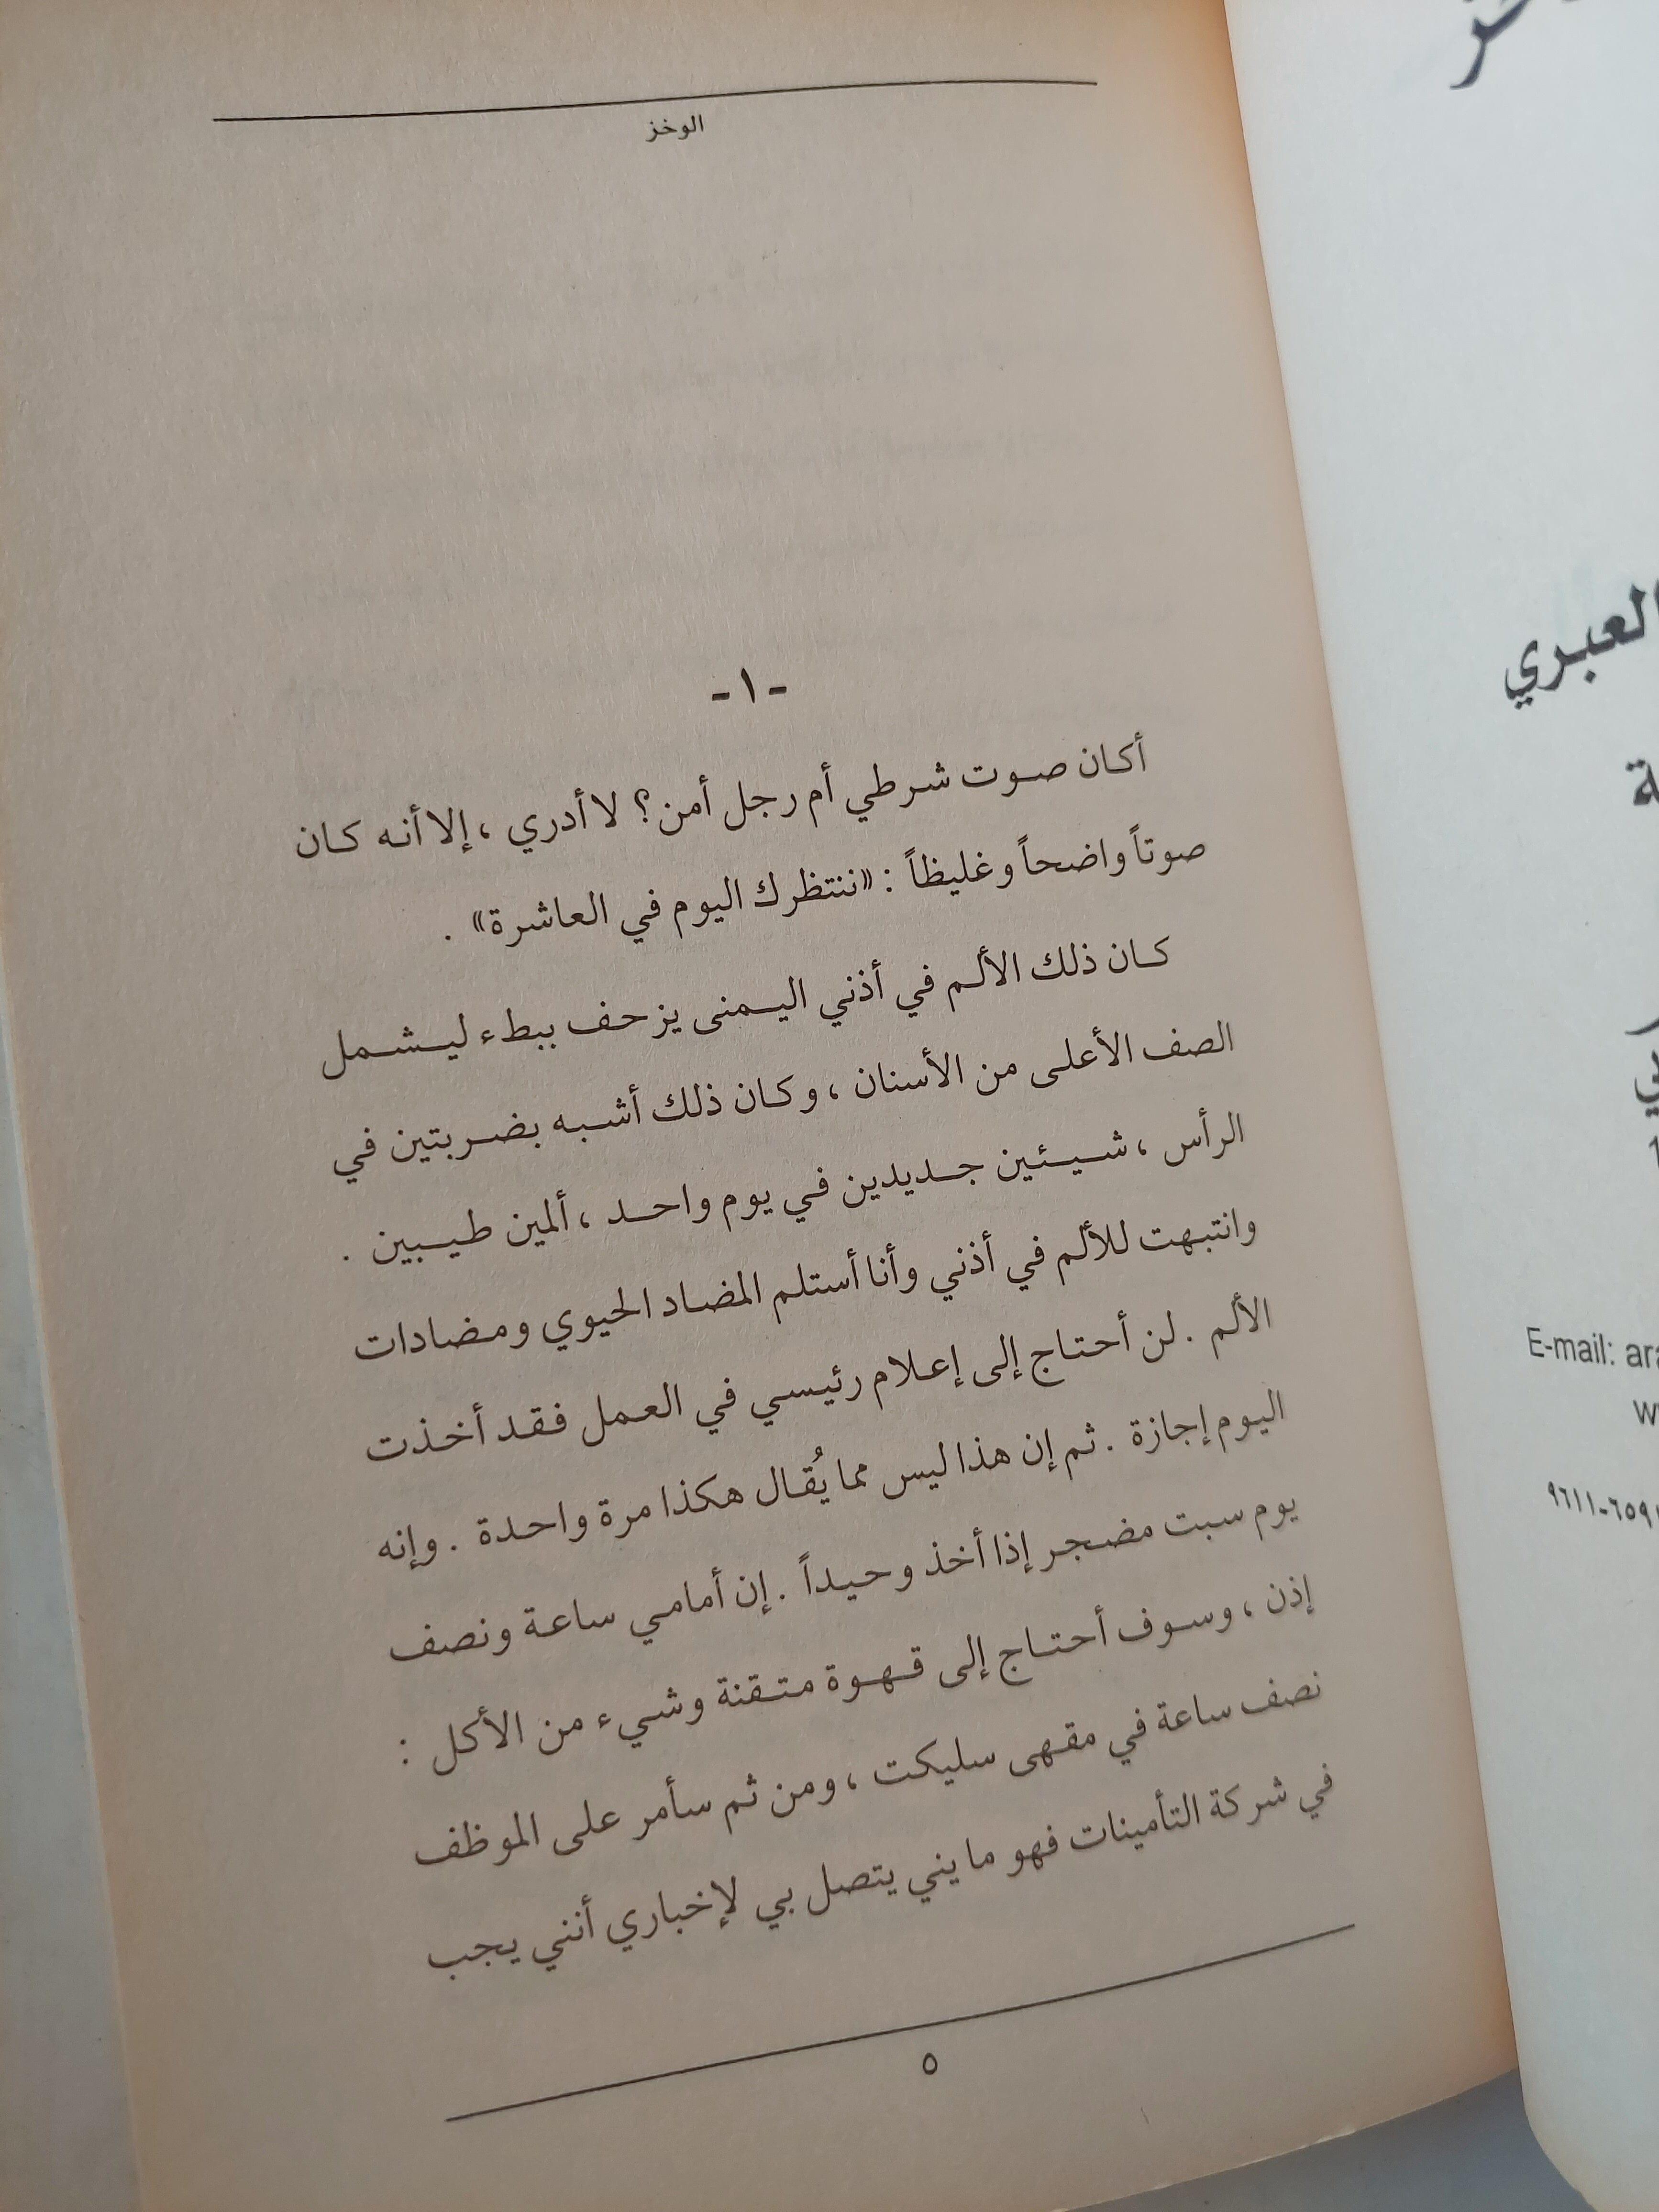 الوخز
-١-
أكان صوت شرطي أم رجل أمن؟ لا أدري، إلا أنه كان
صوتاً واضحاً وغليظاً: «ننتظرك اليوم في العاشرة».
كان ذلك الألم في أذني اليمنى يزحف ببطء ليشمل
الصف الأعلى من الأسنان، وكان ذلك أشبه بضربتين في
الرأس، شيئين جديدين في يوم واحد، ألمين طيبين.
وانتبهت للألم في أذني وأنا أستلم المضاد الحيوي ومضادات
الألم. لن أحتاج إلى إعلام رئيسي في العمل فقد أخذت
اليوم إجازة. ثم إن هذا ليس مما يُقال هكذا مرة واحدة. وإنه
يوم سبت مضجر إذا أخذ وحيداً. إن أمامي ساعة ونصف
إذن، وسوف أحتاج إلى قهوة متقنة وشيء من الأكل:
نصف ساعة في مقهى سليكت، ومن ثم سأمر على الموظف
في شركة التأمينات فهو ما يني يتصل بي لإخباري أنني يجب
٥
العبري
E-mail: